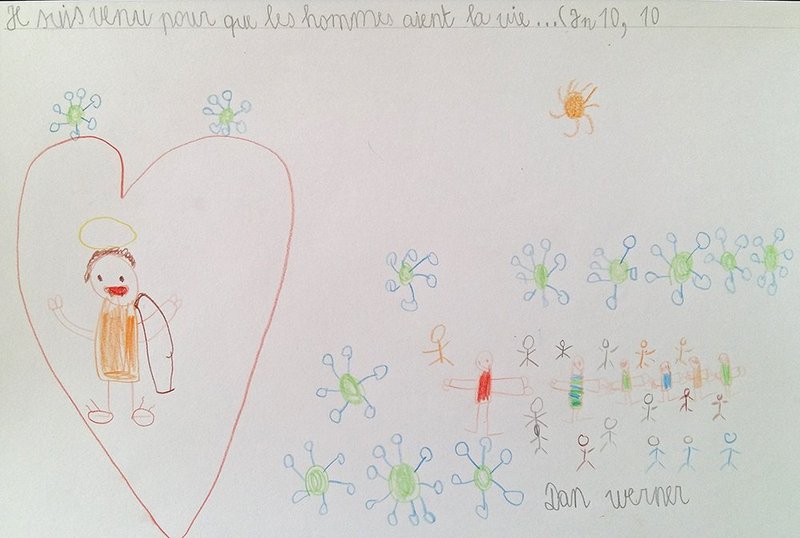 Je suis venu pour que les hommes aient la vie...(Jn 10, 10
Dan Werner